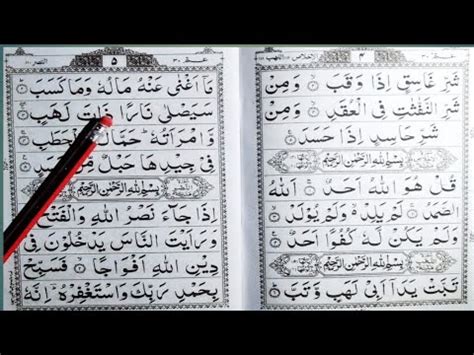 عمّ ٣٠ ٤
شَرِّ غَاسِقٍ اِذَا وَقَبَ ۙ وَمِنْ
شَرِّ النَّفّٰثٰتِ فِي الْعُقَدِ ۙ وَمِنْ
شَرِّ حَاسِدٍ اِذَا حَسَدَ
بِسْمِ اللّٰهِ الرَّحْمٰنِ الرَّحِيْمِ
قُلْ هُوَ اللّٰهُ اَحَدٌ ۚ اَللّٰهُ
الصَّمَدُ ۚ لَمْ يَلِدْ ۙ وَلَمْ يُوْلَدْ ۙ
وَلَمْ يَكُنْ لَّهٗ كُفُوًا اَحَدٌ
بِسْمِ اللّٰهِ الرَّحْمٰنِ الرَّحِيْمِ
تَبَّتْ يَدَآ اَبِيْ لَهَبٍ وَّتَبَّ
عمّ ٣٠ ٥ النصر
مَآ اَغْنٰى عَنْهُ مَالُهٗ وَمَا كَسَبَ
سَيَصْلٰى نَارًا ذَاتَ لَهَبٍ
وَّامْرَاَتُهٗ حَمَّالَةَ الْحَطَبِ
فِيْ جِيْدِهَا حَبْلٌ مِّنْ مَّسَدٍ
بِسْمِ اللّٰهِ الرَّحْمٰنِ الرَّحِيْمِ
اِذَا جَآءَ نَصْرُ اللّٰهِ وَالْفَتْحُ
وَرَاَيْتَ النَّاسَ يَدْخُلُوْنَ فِيْ
دِيْنِ اللّٰهِ اَفْوَاجًا ۙ فَسَبِّحْ
بِحَمْدِ رَبِّكَ وَاسْتَغْفِرْهُ ؕ اِنَّهٗ